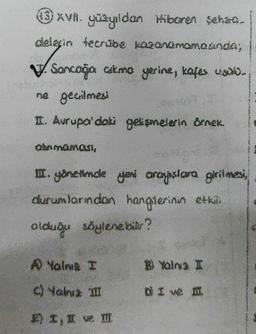 13) XVII. yüzyıldan itibaren şehza-
delerin tecrübe kazanamamasında;
I. Sancağa çıkma yerine, kafes usulü-
ne geçilmesi
II. Avrupa'daki gelişmelerin örnek
alınmaması,
III. yönetimde yeni arayışlara girilmesi,
durumlarından hangilerinin etkili
olduğu söylenebilir?
A) Yalnız I B) Yalnız II
C) Yalnız III D) I ve III
E) I, II ve III